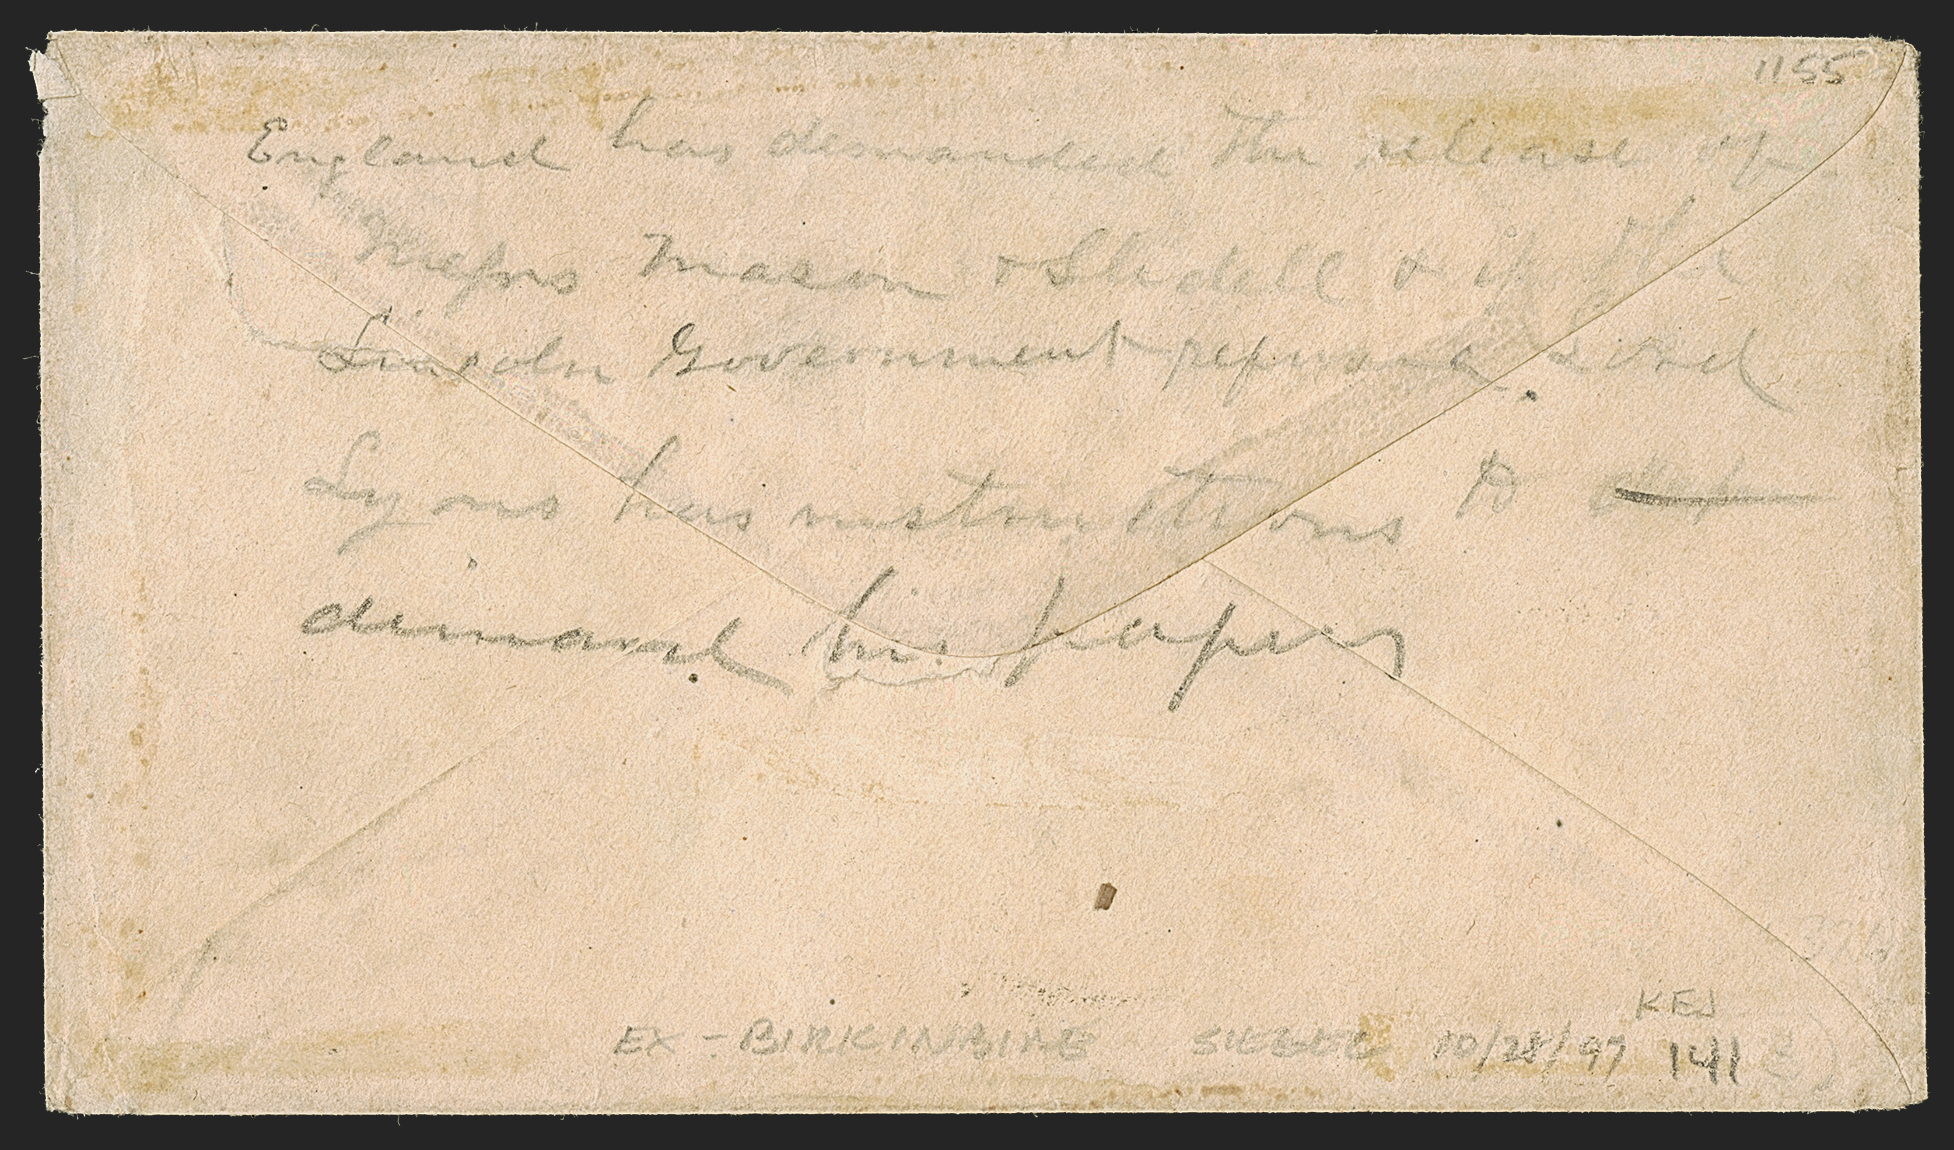 1155
England has demanded the release of
Messrs Mason & Slidell & if the
Lincoln Government refused. Lord
Lyons has instructions to
demand his papers
KEJ
EX - BIRKINBINE SIEGEL 10/28/97 141